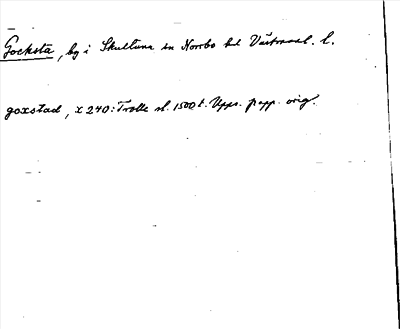 Gocksta, by i Skultuna sn Norrbo hd Västmanl. l.
goxstad, X 240: Trolle sl. 1500 t. Upps. papp. orig.